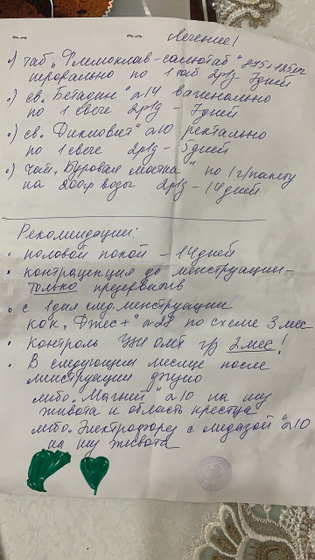 Лечение!
•) таб. "Флемоклав-солютаб" 875+125мг
перорально по 1 таб 2р/д - 7дней
•) св. Бетадин" №14 вагинально
по 1 свече 2р/д - 7дней
•) св. №10 ректально
по 1 свече 2р/д - 5дней
•) Чай, Боровая матка" по 1г/пакету
на 200гр воды 2р/д - 14дней
Рекомендации:
• половой покой - 14дней
• контрацепция до менструации-
только презерватив
• с 1дня след. менструации
кок. "Джес+" №28 по схеме 3мес
• Контроль УЗИ ОМТ ч/з 2мес!
• В следующем месяце после
менструации физио
либо "Магнит" №10 на низ
живота и область крестца
либо "Электрофорез с лидазой" №10
на низ живота